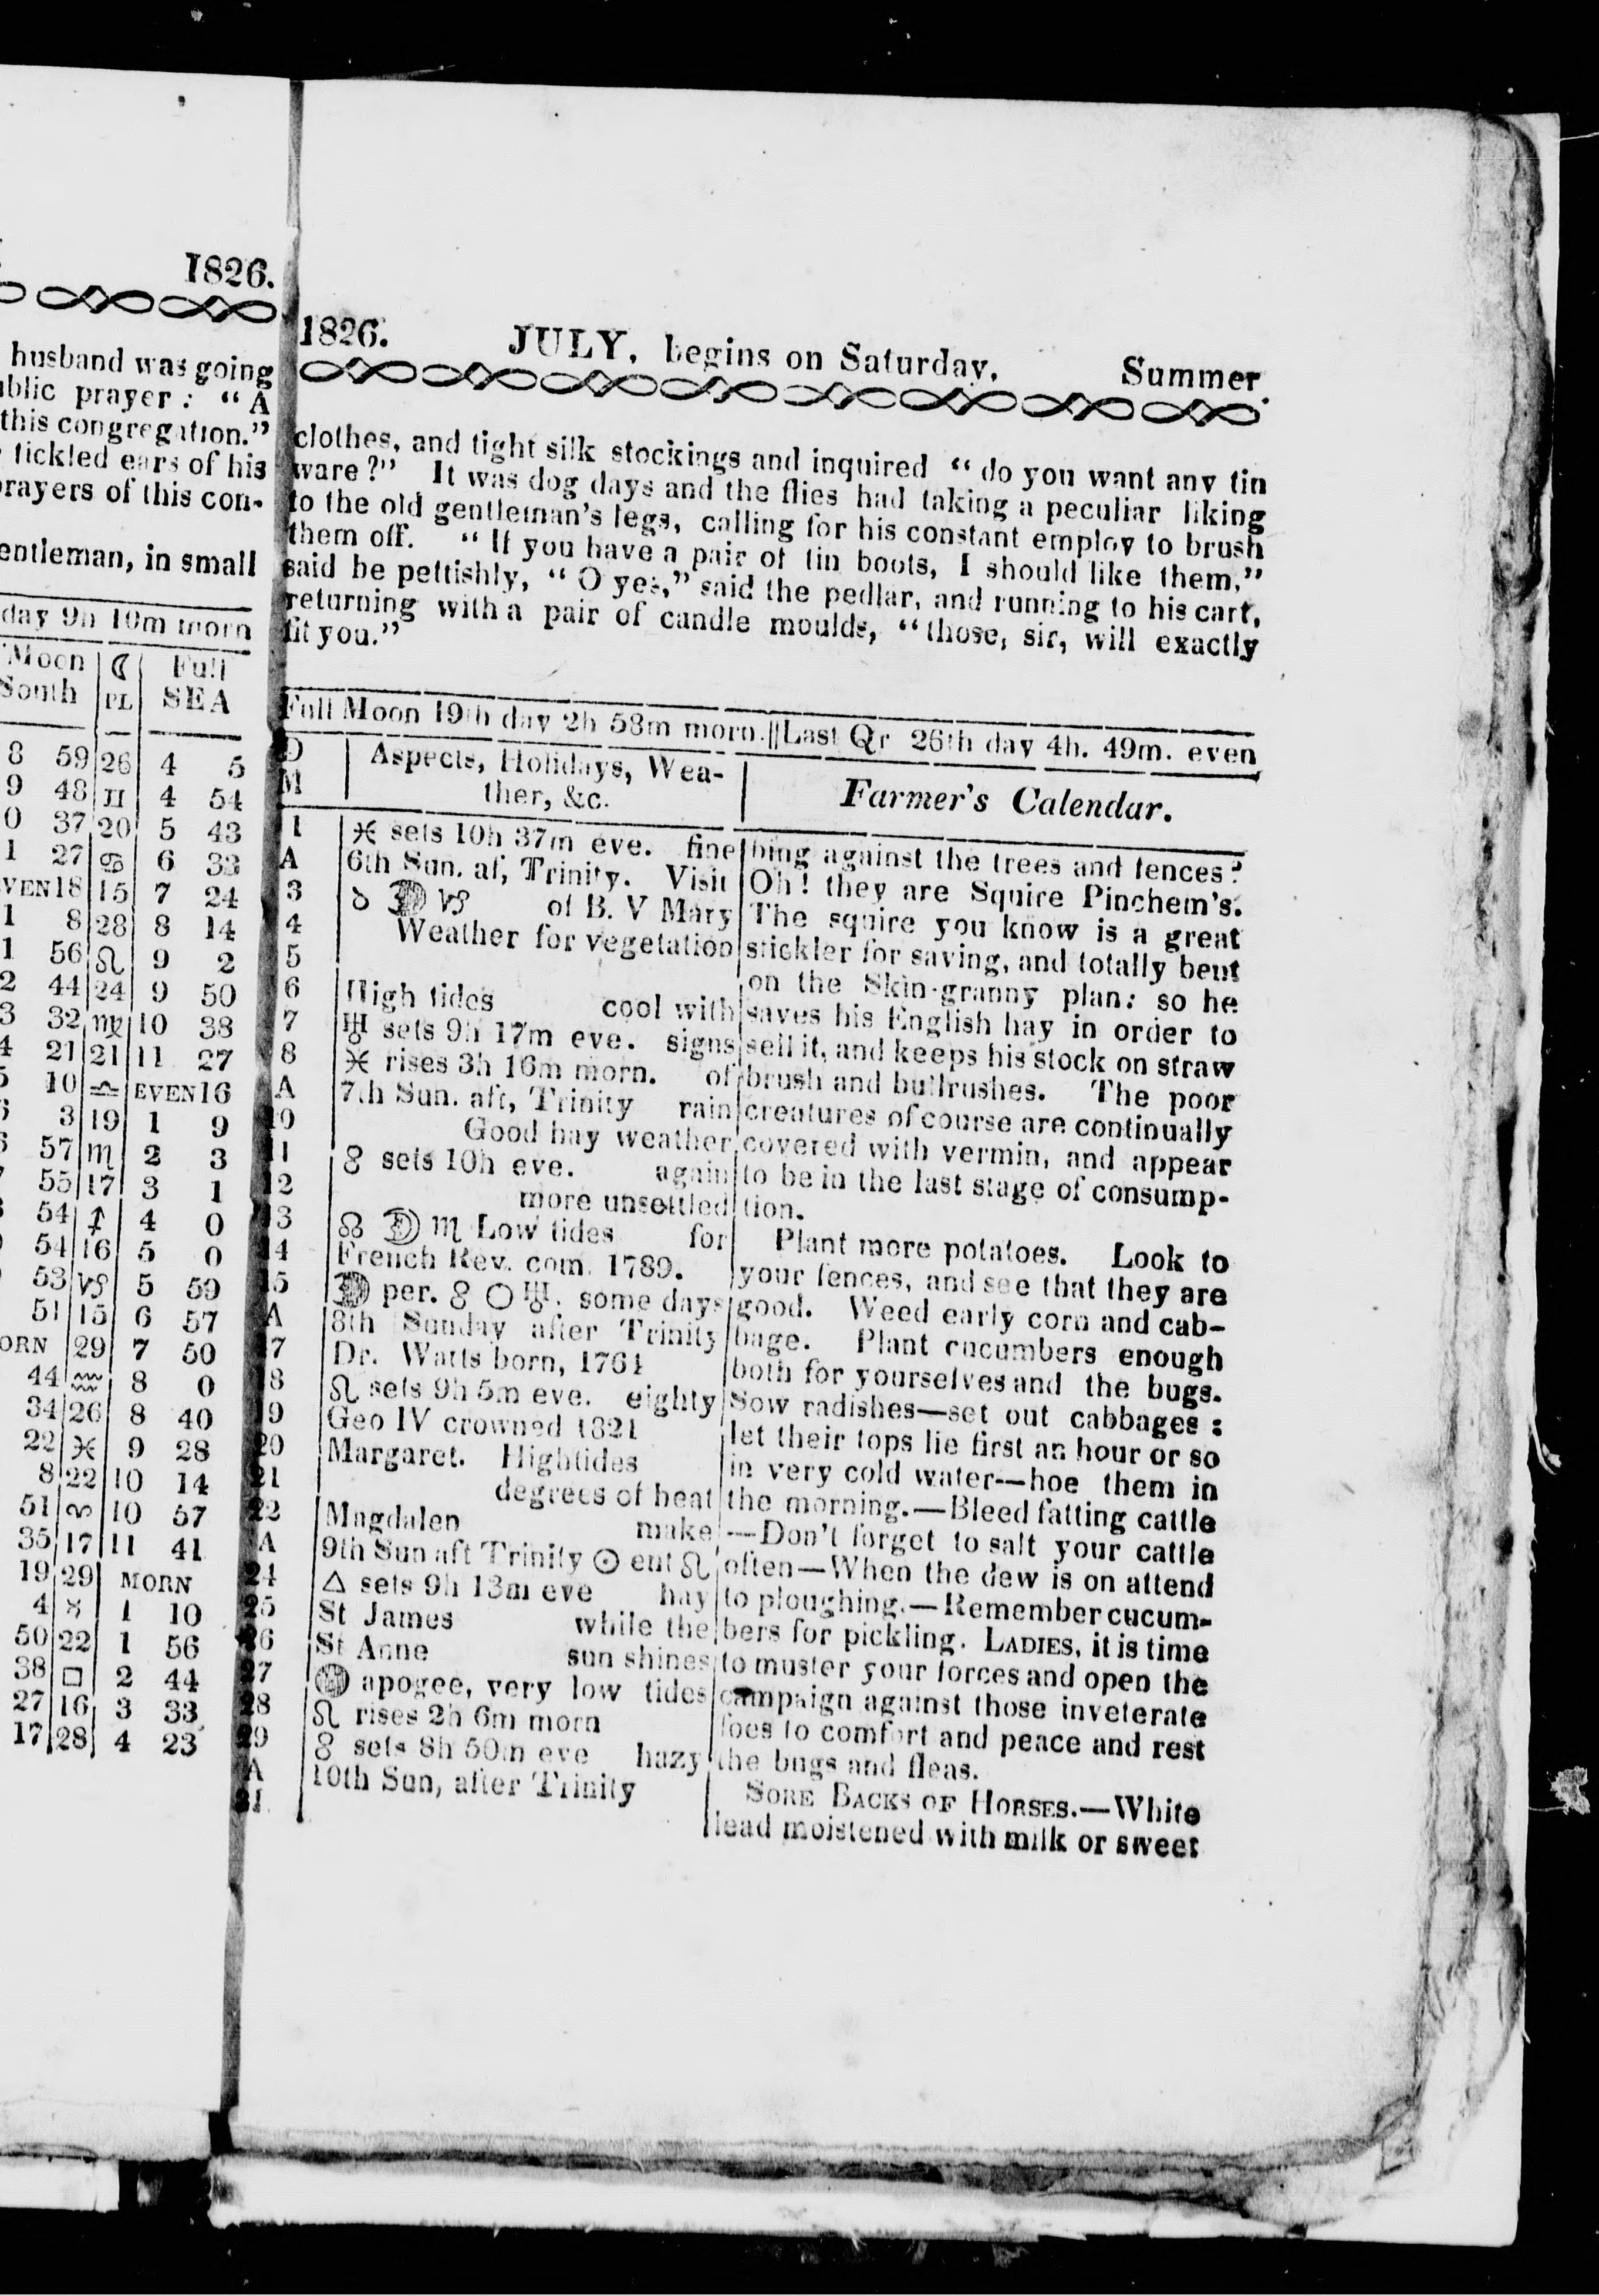 1826.
husband was going
blic prayer: "A
this congregation."
tickled ears of his
rayers of this con-
entleman, in small
day 9h 10m morn
Moon ☾ Full
South PL SEA
8 59 26 4 5
9 48 ♊ 4 54
0 37 20 5 43
1 27 ♋ 6 33
VEN18 15 7 24
1 8 28 8 14
1 56 ♌ 9 2
2 44 24 9 50
3 32 ♍ 10 38
4 21 21 11 27
5 10 ♎ EVEN16
3 19 1 9
57 ♏ 2 3
55 17 3 1
54 ♐ 4 0
54 16 5 0
53 ♑ 5 59
51 15 6 57
ORN 29 7 50
44 ♒ 8 0
34 26 8 40
22 ♓ 9 28
8 22 10 14
51 ♈ 10 57
35 17 11 41
19 29 MORN
4 ♉ 1 10
50 22 1 56
38 □ 2 44
27 16 3 33
17 28 4 23
1826. JULY, begins on Saturday. Summer
clothes, and tight silk stockings and inquired "do you want any tin
ware?" It was dog days and the flies had taking a peculiar liking
to the old gentleman's legs, calling for his constant employ to brush
them off. "If you have a pair of tin boots, I should like them,"
said he pettishly, "O yes," said the pedlar, and running to his cart,
returning with a pair of candle moulds, "those, sir, will exactly
fit you."
Full Moon 19th day 2h 58m morn. || Last Qr 26th day 4h. 49m. even
D Aspects, Holidays, Wea-
M ther, &c.
1 ♓ sets 10h 37m eve. fine
A 6th Sun. af, Trinity. Visit
3 ☌ ☽ ♑ of B. V Mary
4 Weather for vegetation
5
6 High tides cool with
7 ♅ sets 9h 17m eve. signs
8 ♓ rises 3h 16m morn. of
A 7th Sun. aft, Trinity rain
10 Good hay weather
11 ☿ sets 10h eve. again
12 more unsettled
13 ☊ ☽ ♏ Low tides for
14 French Rev. com. 1789.
15 ☽ per. ☿ ○ ♅. some days
A 8th Sunday after Trinity
17 Dr. Watts born, 1764
18 ♌ sets 9h 5m eve. eighty
19 Geo IV crowned 1821
20 Margaret. High tides
21 degrees of heat
22 Magdalen make
A 9th Sun aft Trinity ☉ ent ♌
24 △ sets 9h 13m eve hay
25 St James while the
26 St Anne sun shines
27 ☽ apogee, very low tides
28 ♌ rises 2h 6m morn
29 ☿ sets 8h 50m eve hazy
A 10th Sun, after Trinity
31
Farmer's Calendar.
bing against the trees and fences?
Oh! they are Squire Pinchem's.
The squire you know is a great
stickler for saving, and totally bent
on the Skin-granny plan: so he
saves his English hay in order to
sell it, and keeps his stock on straw
brush and bullrushes. The poor
creatures of course are continually
covered with vermin, and appear
to be in the last stage of consump-
tion.
Plant more potatoes. Look to
your fences, and see that they are
good. Weed early corn and cab-
bage. Plant cucumbers enough
both for yourselves and the bugs.
Sow radishes—set out cabbages:
let their tops lie first an hour or so
in very cold water—hoe them in
the morning.—Bleed fatting cattle
—Don't forget to salt your cattle
often—When the dew is on attend
to ploughing.—Remember cucum-
bers for pickling. LADIES, it is time
to muster your forces and open the
campaign against those inveterate
foes to comfort and peace and rest
the bugs and fleas.
SORE BACKS OF HORSES.—White
lead moistened with milk or sweet